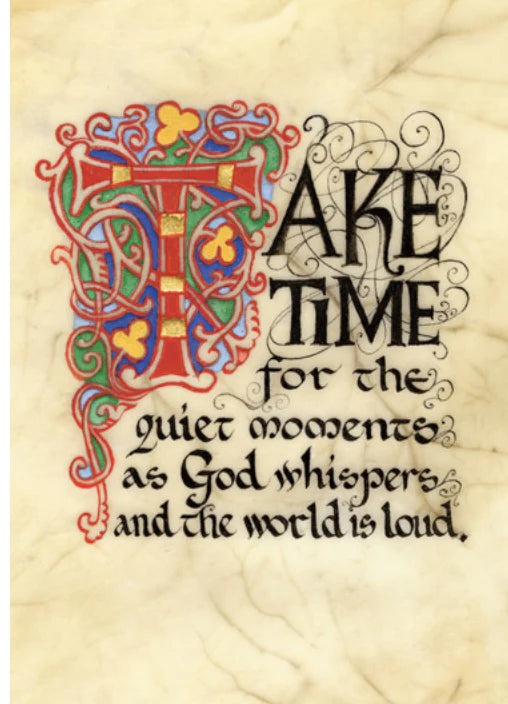 TAKE
TiME
for the
quiet moments
as God whispers
and the world is loud.